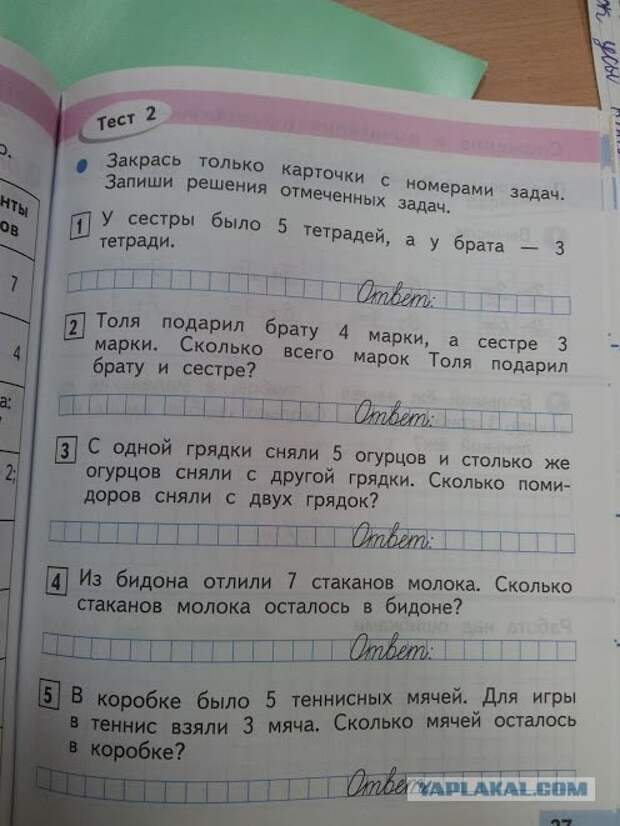 Тест 2
Закрась только карточки с номерами задач.
Запиши решения отмеченных задач.
1 У сестры было 5 тетрадей, а у брата — 3
тетради.
Ответ:
2 Толя подарил брату 4 марки, а сестре 3
марки. Сколько всего марок Толя подарил
брату и сестре?
Ответ:
3 С одной грядки сняли 5 огурцов и столько же
огурцов сняли с другой грядки. Сколько поми-
доров сняли с двух грядок?
Ответ:
4 Из бидона отлили 7 стаканов молока. Сколько
стаканов молока осталось в бидоне?
Ответ:
5 В коробке было 5 теннисных мячей. Для игры
в теннис взяли 3 мяча. Сколько мячей осталось
в коробке?
Ответ:
YAPLAKAL.COM
7
4
2;